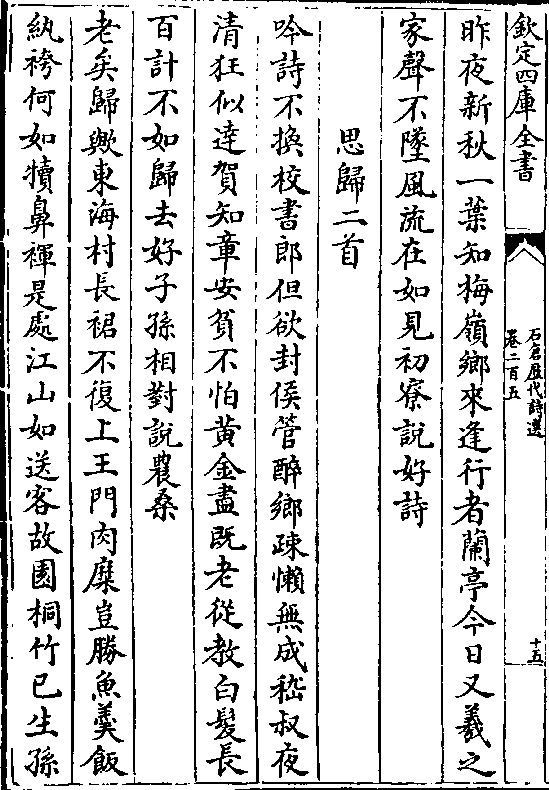 欽定四庫全書
石倉歷代詩選
卷二百五
十五
昨夜新秋一葉知梅嶺鄉來逢行者蘭亭今日又羲之
家聲不墜風流在如見初寮説好詩
思歸二首
吟詩不換校書郎但欲封侯管醉鄉疎懶無成嵇叔夜
清狂似達賀知章安貧不怕黄金盡既老從教白髮長
百計不如歸去好子孫相對説農桑
老矣歸歟東海村長裾不復上王門肉糜豈勝魚羹飯
紈袴何如犢鼻褌是處江山如送客故園桐竹已生孫